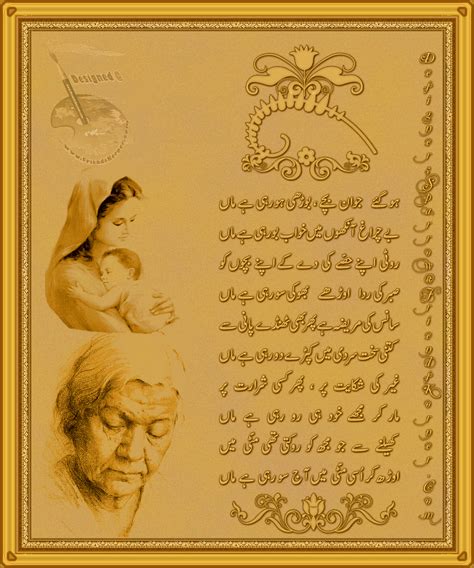 Designed @
ہو گئے جوان بچے ، بوڑھی ہو رہی ہے ماں
بے چراغ آنکھوں میں خواب بو رہی ہے ماں
روٹی اپنے حصے کی دے کے اپنے بچوں کو
صبر کی ردا اوڑھے بھوکی سو رہی ہے ماں
سانس کی مریضہ ہے پھر بھی ٹھنڈے پانی سے
کتنی سخت سردی میں کپڑے دھو رہی ہے ماں
غیر کی شکایت پر ، پھر کسی شرارت پر
مار کر مجھے خود ہی رو رہی ہے ماں
کھیلنے سے جو مجھ کو روکتی تھی مٹی میں
اوڑھ کر اسی مٹی میں آج سو رہی ہے ماں